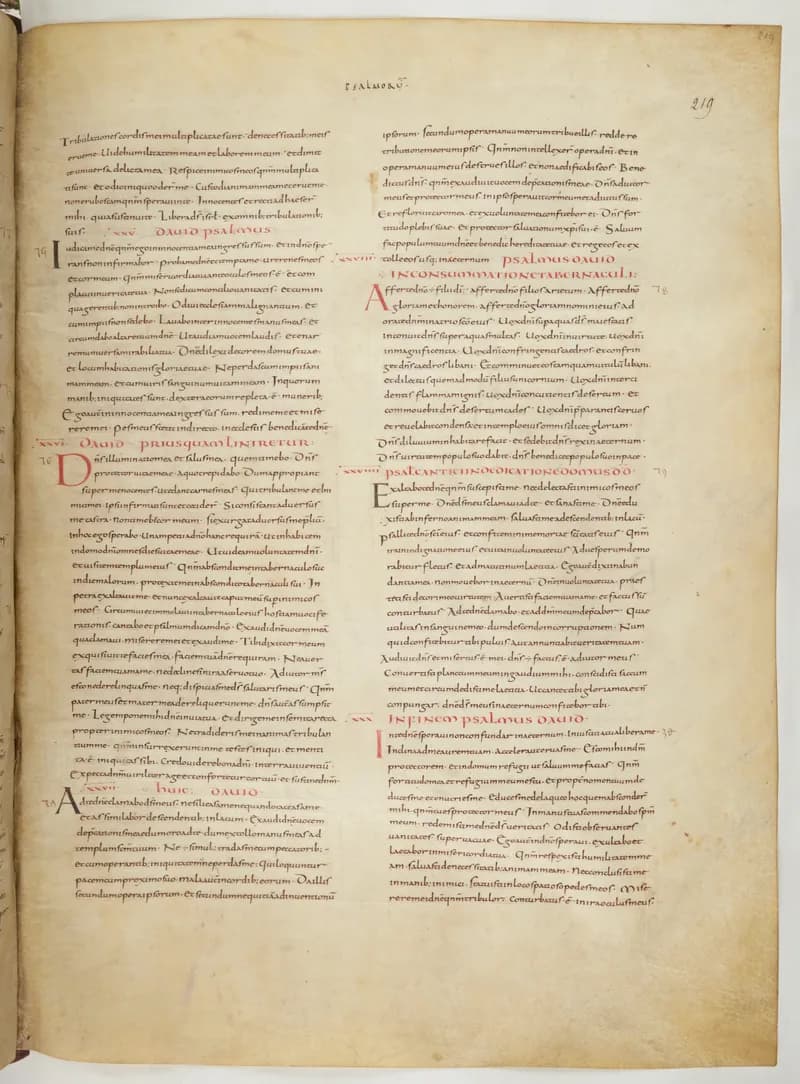 PSALMORŪ
219
Tribulationes cordis mei multiplicatae sunt · de necessitatib; meis
erue me · Uide humilitatem meam et laborem meum · et dimitte
uniuersa delicta mea · Respice inimicos meos qnm multipli
cati sunt · et odio iniquo oder me · Custodi animam meam et erue me
non erubescam qnm speraui in te · Innocentes et recti adhaeser
mihi · quia sustinui te · Libera ds isrl · ex omnib; tribulationib;
suis ·
XXV DAUID PSALMUS
Iudica me dne qnm ego in innocentia mea ingressus sum · et in dno spe
rans non infirmabor · proba me dne et tempta me · ure renes meos
et cor meum · Qnm misericordia tua ante oculos meos ē · et com
placui in ueritate tua · Non sedi cum concilio uanitatis · et cum ini
qua gerentib; non introibo · Odiui ecclesiam malignantium · et
cum impiis non sedebo · Lauabo inter innocentes manus meas · et
circumdabo altare tuum dne · Ut audiam uocem laudis · et enar
rem uniuersa mirabilia tua · Dne dilexi decorem domus tuae ·
et locum habitationis gloriae tuae · Ne perdas cum impiis ani
mam meam · et cum uiris sanguinum uitam meam · In quorum
manib; iniquitates sunt · dextera eorum repleta ē · munerib;
Ego autē in innocentia mea ingressus sum · redime me et mise
rere mei · Pes meus stetit in directo · in ecclesiis benedicā te dne ·
XXVI DAUID PRIUSQUAM LINIRETUR ·
Dns illuminatio mea · et salus mea · quem timebo · Dns
protector uitae meae · a quo trepidabo · Dum appropiant
super me nocentes · ut edant carnes meas · Qui tribulant me et ini
mici mei · ipsi infirmati sunt et cecider · Si consistant aduersus
me castra · non timebit cor meum · si exurgat aduersus me proeliū ·
in hoc ego sperabo · Unam petii a dno hanc requirā · ut inhabitem
in domo dni omnes dies uitae meae · Ut uideam uoluntatem dni ·
et uisitem templum eius · Qnm abscondit me in tabernaculo suo
in die malorum · protexit me in abscondito tabernaculi sui · In
petra exaltauit me · et nunc exaltauit caput meū sup inimicos
meos · Circuiui et immolaui in tabernaculo eius hostiam uocife
rationis · cantabo et psalmum dicam dno · Exaudi dne uocem meā
qua clamaui · miserere mei et exaudi me · Tibi dixit cor meum
exquisiuit te facies mea · faciem tuā dne requiram · Ne auer
tas faciem tuam a me · ne declines in ira a seruo tuo · Adiutor ms
esto ne derelinquas me · neq; dispicias me ds salutaris meus · Qnm
pater meus et mater mea dereliquerunt me · dns autē assumpsit
me · Legem pone mihi dne in uia tua · et dirige me in semita recta
propter inimicos meos · Ne tradideris me in animas tribulan
tium me · qnm insurrexerunt in me testes iniqui · et menti
ta ē · iniquitas sibi · Credo uidere bona dni · in terra uiuentiū
Expecta dnm uiriliter age et confortetur cor tuū · et sustine dnm ·
XXVII HUIC DAUID ·
Ad te dne clamabo ds meus · ne sileas a me nequando taceas a me
et assimilabor descendentib; in lacum · Exaudi dne uocem
deprecationis meae dum oro ad te · dum extollo manus meas ad
templum scm tuum · Ne simul tradas me cum peccatorib; ·
et cum operantib; iniquitatem ne perdas me · Qui loquuntur
pacem cum proximo suo · mala autē in cordib; eorum · Da illis
secundum opera ipsorum · et secundum nequitiā adinuentionū
ipsorum · Secundum opera manuum eorum tribue illis · redde re
tributionem eorum ipsis · Qnm non intellexer opera dni · et in
opera manuum eius destrues illos · et non aedificabis eos · Bene
dictus dns · qnm exaudiuit uocem deprecationis meae · Dns adiutor
meus et protector meus · in ipso sperauit cor meum et adiutus sum ·
Et refloruit caro mea · et ex uoluntate mea confitebor ei · Dns for
titudo plebis suae · et protector saluationum xpi sui ē · Saluum
fac populum tuum dne et benedic hereditati tuae · et rege eos et ex
tolle eos usq; in aeternum
XXVIII PSALMUS DAUID
IN CONSUMMATIONE TABERNACULI :
Afferte dno filii di · afferte dno filios arietum · Afferte dno
gloriam et honorem · afferte dno gloriam nomini eius · ad
orate dnm in atrio sco eius · Uox dni sup aquas ds maiestatis
intonuit dns super aquas multas · Uox dni in uirtute · uox dni
in magnificentia · Uox dni confringentis cedros · et confrin
get dns cedros libani · Et comminuet eos tamquam uitulū libani ·
et dilectus quemadmodū filius unicornium · Uox dni interci
dentis flammam ignis · uox dni concutientis desertum · et
commouebit dns desertum cades · Uox dni pparantis ceruos
et reuelabit condensa · et in templo eius omnis dicet gloriam ·
Dns diluuium inhabitare facit · et sedebit dns rex in aeternum ·
Dns uirtutem populo suo dabit · dns benedicet populo suo in pace ·
XXVIIII PSAL CANTICI IN DEDICATIONE DOMUS DD
Exaltabo te dne qnm suscepisti me · nec delectasti inimicos meos
super me · Dne ds meus clamaui ad te · et sanasti me · Dne edu
xisti ab inferno animam meam · saluasti me a descendentib; in lacū ·
psallite dno sci eius · et confitemini memoriae scitatis eius · Qnm
ira in indignatione eius · et uita in uoluntate eius · Ad uesperum demo
rabitur fletus · et ad matutinum laetitia · Ego autē dixi in abun
dantia mea · non mouebor in aeternū · Dne in uoluntate tua · praes
titisti decori meo uirtutem · Auertisti faciem tuam a me · et factus sū
conturbatus · Ad te dne clamabo · et ad dm meum depcabor · Quae
utilitas in sanguine meo · dum descendo in corruptionem · Num
quid confitebitur tibi puluis · aut annuntiabit ueritatem tuam ·
Audiuit dns et misertus ē mei · dns factus ē adiutor meus
Conuertisti planctum meum in gaudium mihi · conscidisti saccum
meum et circumdedisti me laetitia · Ut cantet tibi gloria mea et n
compungar · dne ds meus in aeternum confitebor tibi ·
XXX IN FINEM PSALMUS DAUID ·
In te dne speraui non confundar in aeternum · in iustitia tua libera me ·
Inclina ad me aurem tuam · accelera ut eruas me · Esto mihi in dm
protectorem · et in domum refugii ut saluum me facias · Qnm
fortitudo mea et refugium meum es tu · et propt nomen tuum de
duces me · et enutries me · Educes me de laqueo hoc quem absconder
mihi · qnm tu es protector meus · In manus tuas commendabo spm
meum · redemisti me dne ds ueritatis · Odisti obseruantes
uanitates superuacue · Ego autē in dno speraui · exultabo et
laetabor in misericordia tua · Qnm respexisti humilitatem me
am · saluasti de necessitatib; animam meam · Nec conclusisti me
in manib; inimici · statuisti in loco spatioso pedes meos · Mise
rere mei dne qnm tribulor · Conturbatus ē · in ira oculus meus ·